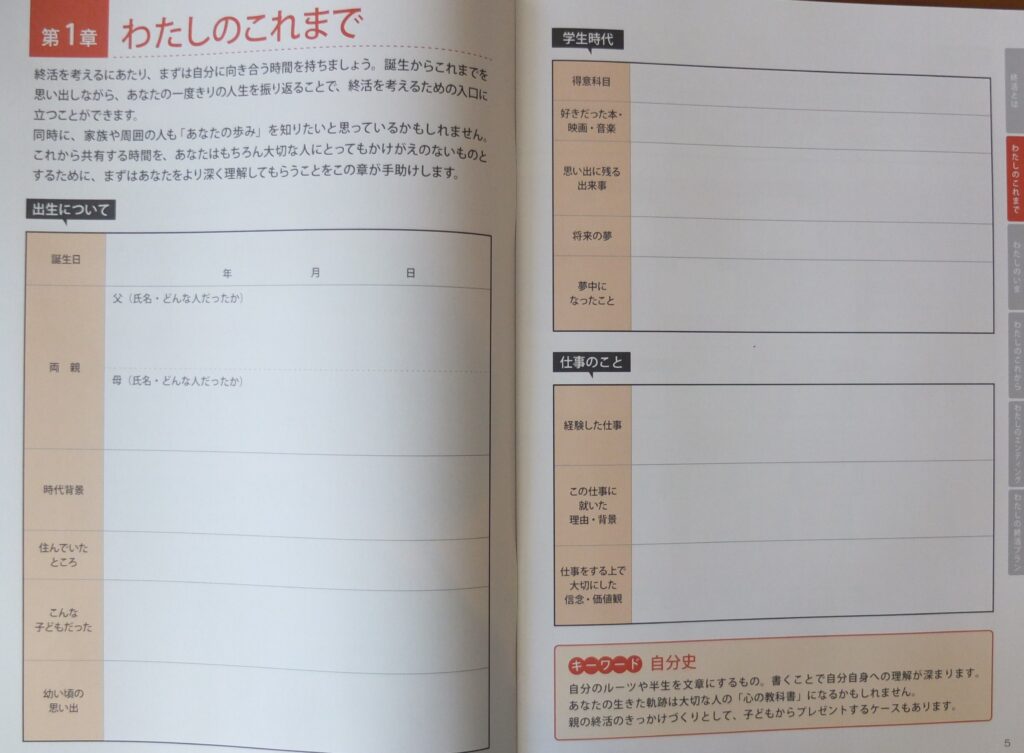 第1章 わたしのこれまで
終活を考えるにあたり、まずは自分に向き合う時間を持ちましょう。誕生からこれまでを
思い出しながら、あなたの一度きりの人生を振り返ることで、終活を考えるための入口に
立つことができます。
同時に、家族や周囲の人も「あなたの歩み」を知りたいと思っているかもしれません。
これから共有する時間を、あなたはもちろん大切な人にとってもかけがえのないものと
するために、まずはあなたをより深く理解してもらうことをこの章が手助けします。
出生について
誕生日
年 月 日
両 親
父（氏名・どんな人だったか）
母（氏名・どんな人だったか）
時代背景
住んでいた
ところ
こんな
子どもだった
幼い頃の
思い出
学生時代
得意科目
好きだった本・
映画・音楽
思い出に残る
出来事
将来の夢
夢中に
なったこと
仕事のこと
経験した仕事
この仕事に
就いた
理由・背景
仕事をする上で
大切にした
信念・価値観
キーワード 自分史
自分のルーツや半生を文章にするもの。書くことで自分自身への理解が深まります。
あなたの生きた軌跡は大切な人の「心の教科書」になるかもしれません。
親の終活のきっかけづくりとして、子どもからプレゼントするケースもあります。
終活とは
わたしのこれまで
わたしのいま
わたしのこれから
わたしのエンディング
わたしの終活プラン
5